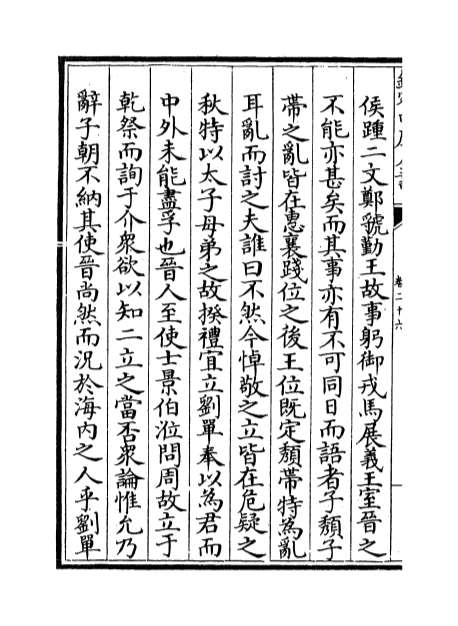 侯踵二文鄭虢勤王故事躬御戎馬展義王室晉之
不能亦甚矣而其事亦有不可同日而語者子頹子
帶之亂皆在惠襄踐位之後王位既定頹帶特為亂
耳亂而討之夫誰曰不然今悼敬之立皆在危疑之
秋特以太子母弟之故揆禮宜立劉單奉以為君而
中外未能盡孚也晉人至使士景伯涖問周故立于
乾祭而詢于介衆欲以知二立之當否衆論惟允乃
辭子朝不納其使晉尚然而況於海内之人乎劉單
卷二十六